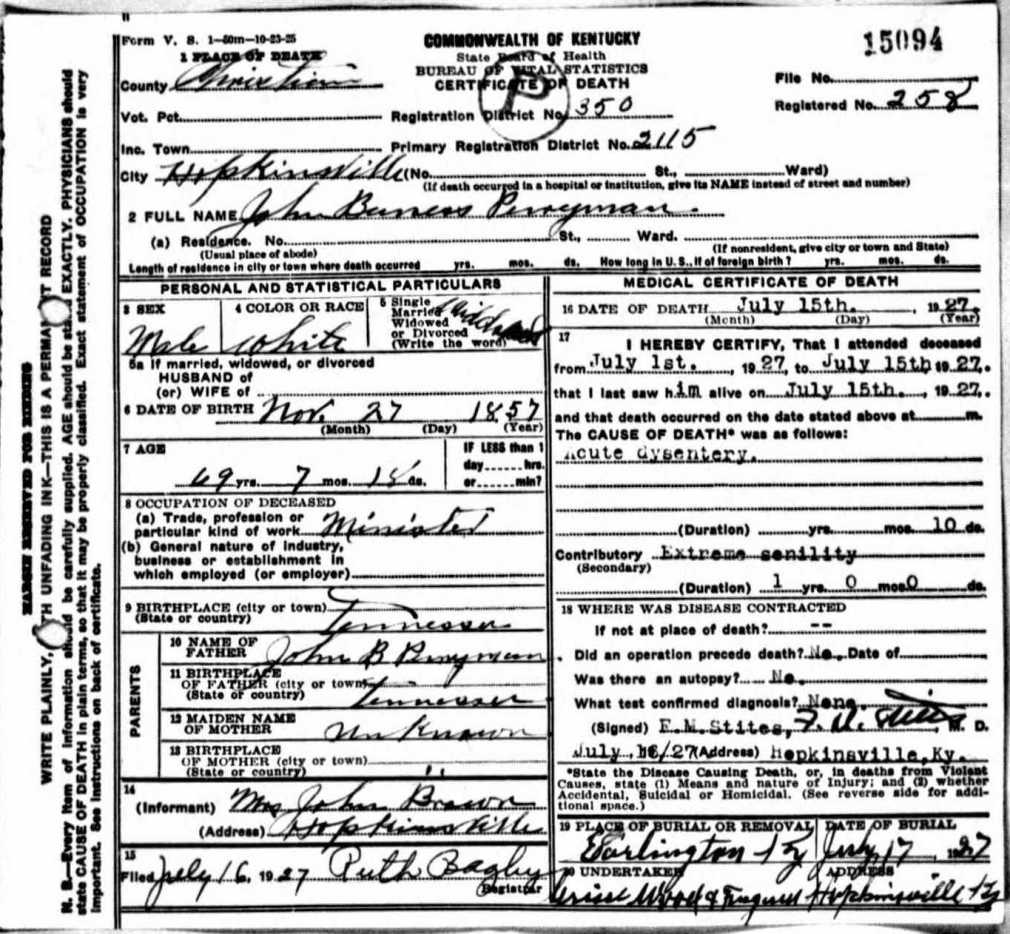 Form V. S. 1-50m-10-23-25
COMMONWEALTH OF KENTUCKY
State Board of Health
BUREAU OF VITAL STATISTICS
CERTIFICATE OF DEATH
15094
1 PLACE OF DEATH
County Christian
File No.
Registered No. 258
Vot. Pct. Registration District No. 350
Inc. Town Primary Registration District No. 2115
City Hopkinsville (No. St., Ward)
(If death occurred in a hospital or institution, give its NAME instead of street and number)
2 FULL NAME John Perryman
(a) Residence. No. St., Ward.
(Usual place of abode) (If nonresident, give city or town and State)
Length of residence in city or town where death occurred yrs. mos. ds. How long in U.S., if of foreign birth? yrs. mos. ds.
PERSONAL AND STATISTICAL PARTICULARS
3 SEX Male
4 COLOR OR RACE White
5 Single Married Widowed or Divorced (Write the word)
5a If married, widowed, or divorced
HUSBAND of
(or) WIFE of
6 DATE OF BIRTH Nov. 27 1857
(Month) (Day) (Year)
7 AGE
69 yrs. 7 mos. 18 ds.
IF LESS than 1
day hrs.
or min?
8 OCCUPATION OF DECEASED
(a) Trade, profession or
particular kind of work Minister
(b) General nature of industry,
business or establishment in
which employed (or employer)
9 BIRTHPLACE (city or town)
(State or country) Tennessee
PARENTS
10 NAME OF
FATHER John B Perryman
11 BIRTHPLACE
OF FATHER (city or town)
(State or country) Tennessee
12 MAIDEN NAME
OF MOTHER Unknown
13 BIRTHPLACE
OF MOTHER (city or town)
(State or country) "
14
(Informant) Mrs John Brown
(Address) Hopkinsville
15
Filed July 16, 1927 Ruth Bagby
Registrar
MEDICAL CERTIFICATE OF DEATH
16 DATE OF DEATH July 15th. 1927.
(Month) (Day) (Year)
17
I HEREBY CERTIFY, That I attended deceased
from July 1st. , 1927, to July 15th 1927.
that I last saw him alive on July 15th. , 1927.
and that death occurred on the date stated above at m.
The CAUSE OF DEATH* was as follows:
Acute dysentery.
(Duration) yrs. mos. 10 ds.
Contributory Extreme senility
(Secondary)
(Duration) 1 yrs. 0 mos. 0 ds.
18 WHERE WAS DISEASE CONTRACTED
If not at place of death? --
Did an operation precede death? No. Date of
Was there an autopsy? No.
What test confirmed diagnosis? None.
(Signed) F.M.Stites, M. D.
July, 16/27 (Address) Hopkinsville, Ky.
*State the Disease Causing Death, or, in deaths from Violent
Causes, state (1) Means and nature of Injury; and (2) whether
Accidental, Suicidal or Homicidal. (See reverse side for addi-
tional space.)
19 PLACE OF BURIAL OR REMOVAL DATE OF BURIAL
Earlington Ky July 17 1927
20 UNDERTAKER ADDRESS
Wood & Hopkinsville Ky
MARGIN RESERVED FOR BINDING
WRITE PLAINLY, WITH UNFADING INK—THIS IS A PERMANENT RECORD
N. B.—Every item of information should be carefully supplied. AGE should be stated EXACTLY. PHYSICIANS should
state CAUSE OF DEATH in plain terms, so that it may be properly classified. Exact statement of OCCUPATION is very
important. See instructions on back of certificate.